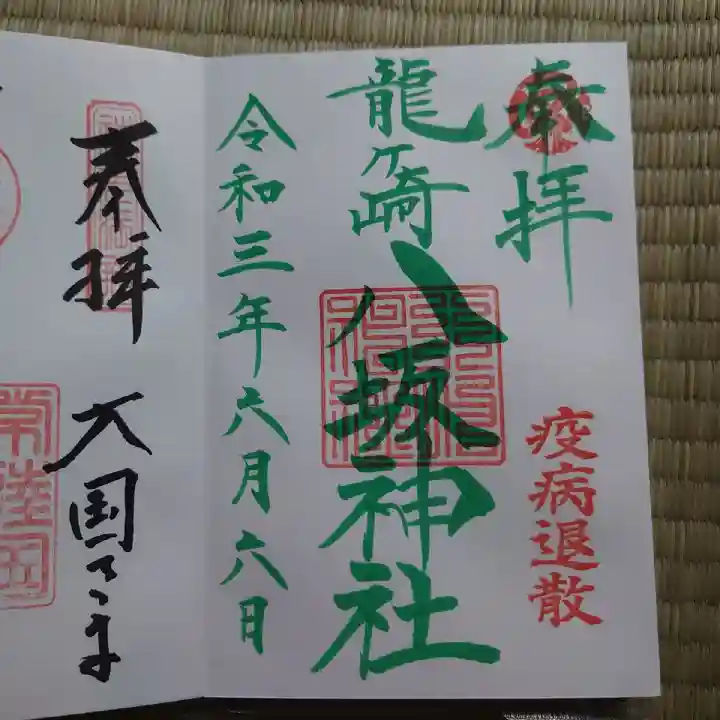 奉拝
疫病退散
龍ヶ崎
八坂神社
令和三年六月六日
奉拝
大国さま
常陸国